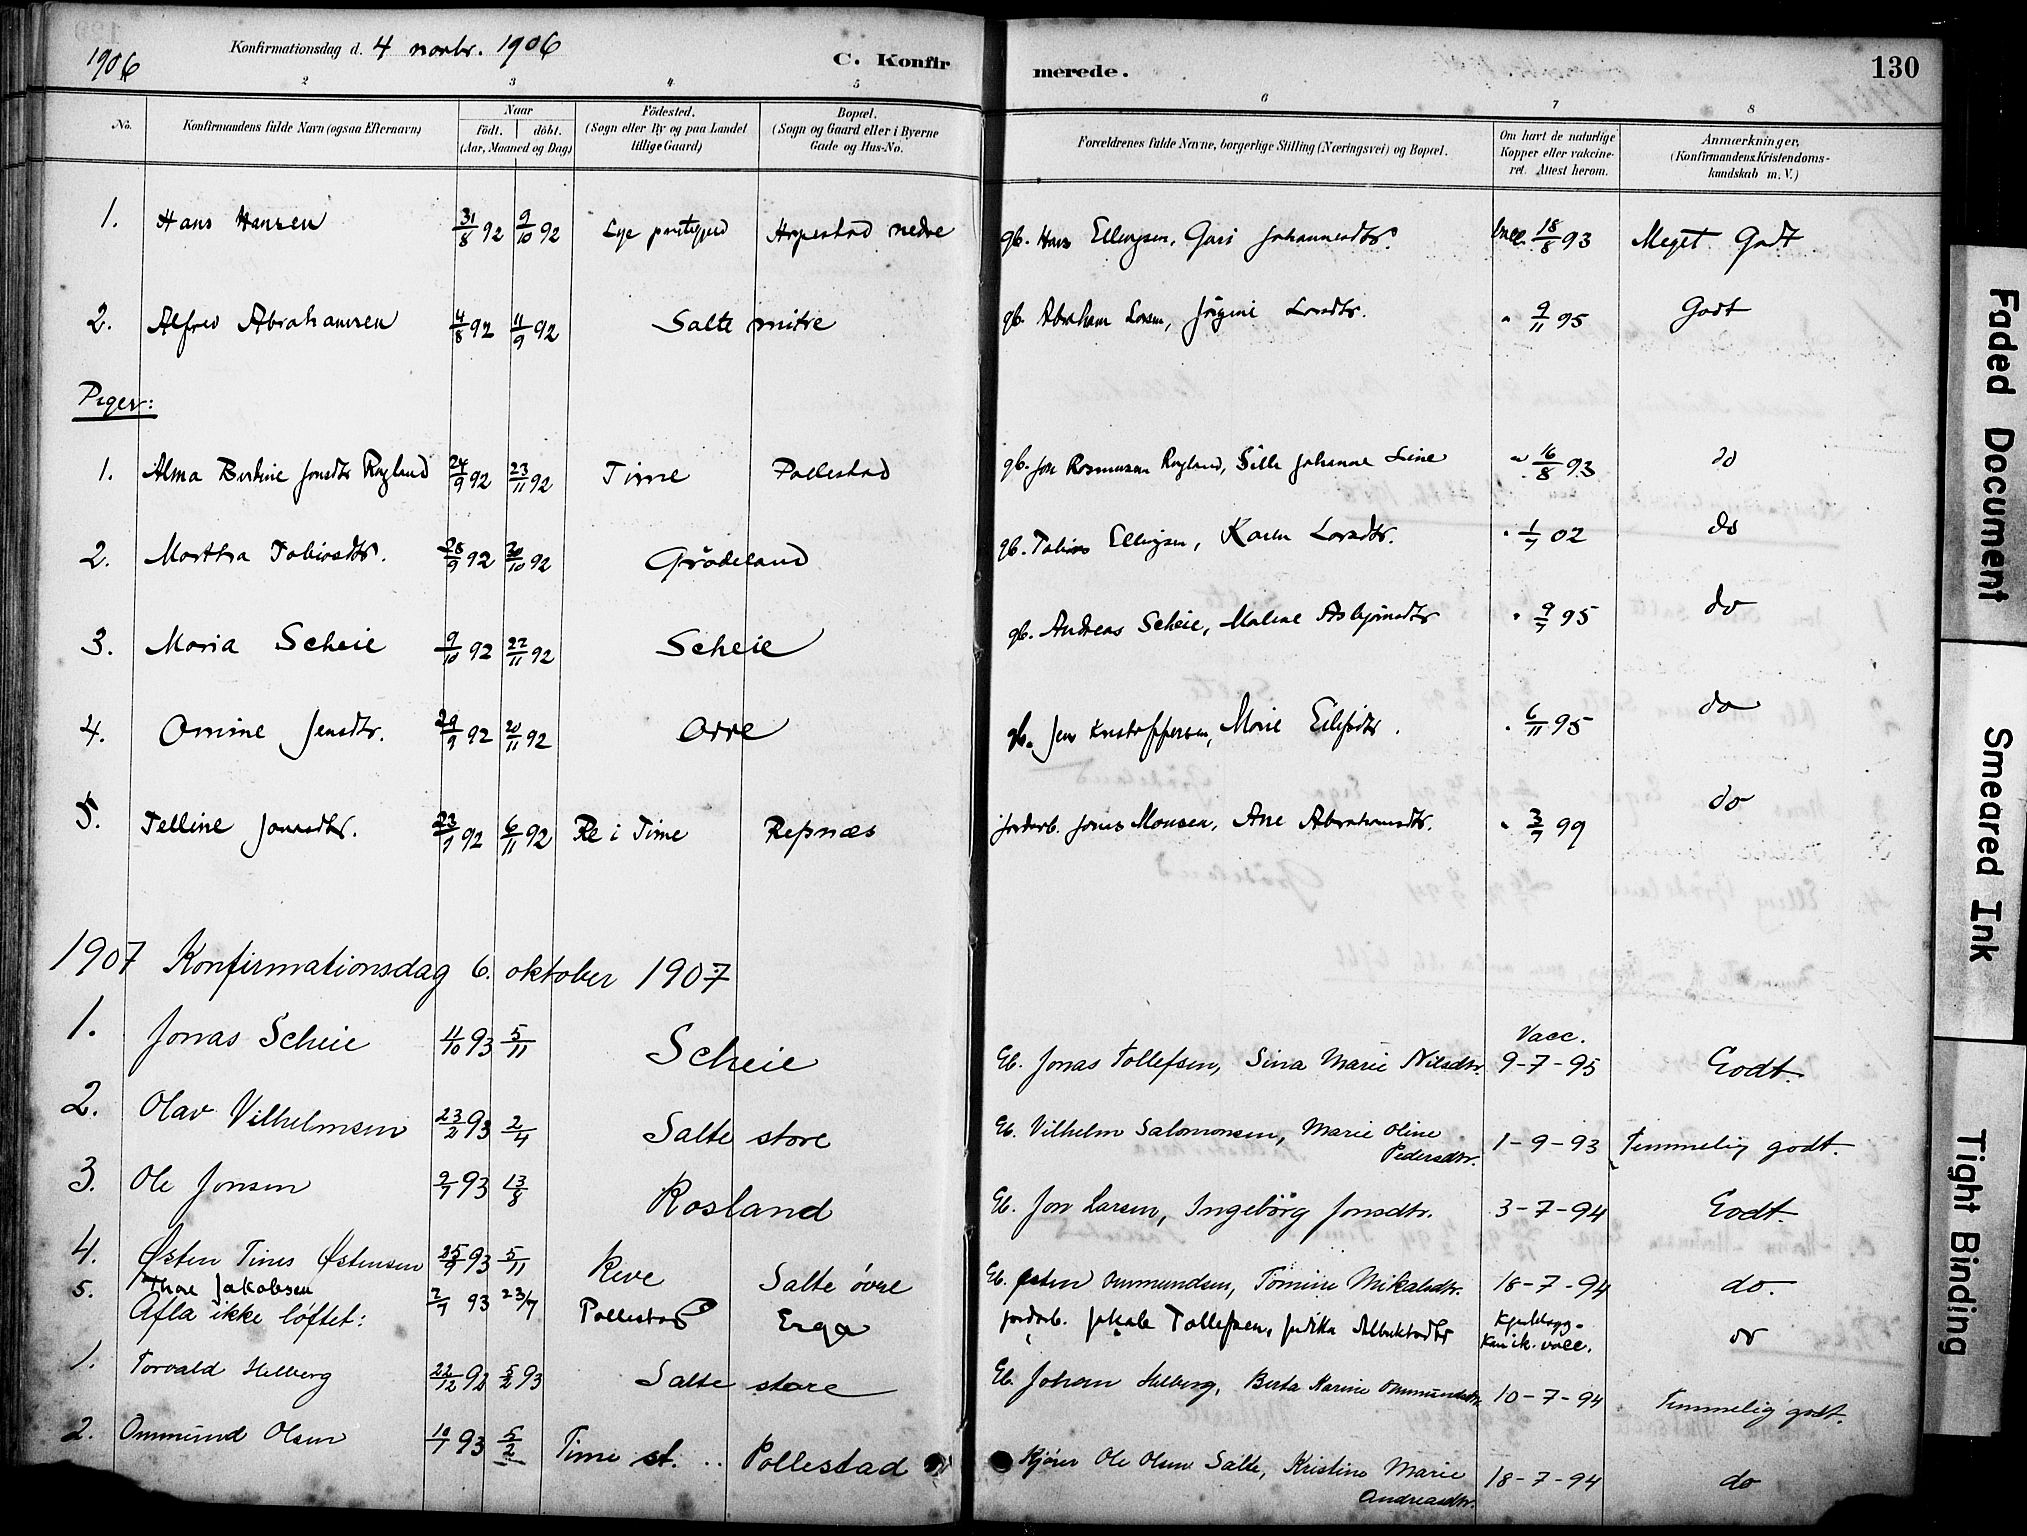 1906
Konfirmationsdag d. 4 novbr. 1906
C. Konfir merede.
130
2 3 4 5 6 7 8
No.
Konfirmandens fulde Navn (ogsaa Efternavn)
Naar
födt. döbt.
(Aar, Maaned og Dag)
Födested.
(Sogn eller By og paa Landet
tillige Gaard)
Bopæl.
(Sogn og Gaard eller i Byerne
Gade og Hus-No.
Forældrenes fulde Navne, borgerlige Stilling (Næringsvei) og Bopæl.
Om havt de naturlige
Kopper eller vakcine-
ret. Attest herom.
Anmærkninger,
(Konfirmandens Kristendoms-
kundskab m. V.)
1. Hans Hansen 31/8 92 9/10 92 Lye Hapestad nedre gb. Hans Ellingsen, Guri Johannesdtr. Vacc. 18/8 93 Meget Godt
2. Alfred Abrahamsen 4/8 92 11/9 92 Salte mitre gb. Abraham Larsen, Jörgine Larsdtr. " 9/11 95 Godt
Piger:
1. Alma Bertine Jonsdtr Rogland 24/9 92 23/11 92 Time Pollestad gb. Jon Rasmussen Rogland, Sille Johanne Line " 16/8 93 do
2. Martha Tobiasdtr. 28/9 92 30/10 92 Grödeland gb. Tobias Ellingsen, Karen Larsdtr. " 1/7 02 do
3. Maria Scheie 9/10 92 27/11 92 Scheie gb. Andreas Scheie, Malene Asbjörnsdtr " 9/7 95 do
4. Omine Jensdtr. 29/9 92 20/11 92 Orre gb. Jens Kristoffersen, Marie Eilefsdtr. " 6/11 95 do
5. Telline Jonasdtr. 23/9 92 6/11 92 Re i Time Refsnæs forderb. Jonas Monsen, Ane Abrahamsdtr. " 3/7 99 do
1907 Konfirmationsdag 6. oktober 1907
1. Jonas Scheie 4/10 93 5/11 Scheie Gb. Jonas Tollefsen, Sina Marie Nilsdtr. Vacc. 9-7-95 Godt.
2. Olav Vilhelmsen 23/2 93 2/4 Salte store Gb. Vilhelm Salomonsen, Marie Oline Pedersdtr. 1-9-93 Temmelig godt.
3. Ole Jonsen 9/7 93 13/8 Rosland Gb. Jon Larsen, Ingebörg Jonsdtr. 3-7-94 Godt.
4. Østen Tines Østensen 25/9 93 5/11 Reve Salte övre Gb. Østen Ommundsen, Tomine Mikalsdtr. 18-7-94 do.
5. Thor Jakobsen 93 23/7 Pollestad Erga jordarb. Jakob Tollefsen, Juditta
Afla ikke löftet: Kan ik. vacc. do
1. Torvald Helberg 22/12 92 5/2 93 Salte store Gb. Johan Helberg, Berta Karine Ommundsdtr. 10-7-94 Temmelig godt.
2. Ommund Olsen 10/1 93 5/2 Time st. Pollestad Kjörer Ole Olsen Salte, Kristine Marie Andreasdtr. 18-7-94 do
Faded Document
Smeared Ink
Tight Binding